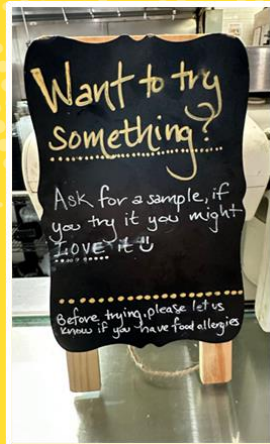 Want to try
something?
Ask for a sample, if
you try it you might
LOVE it
Before trying, please let us
know if you have food allergies